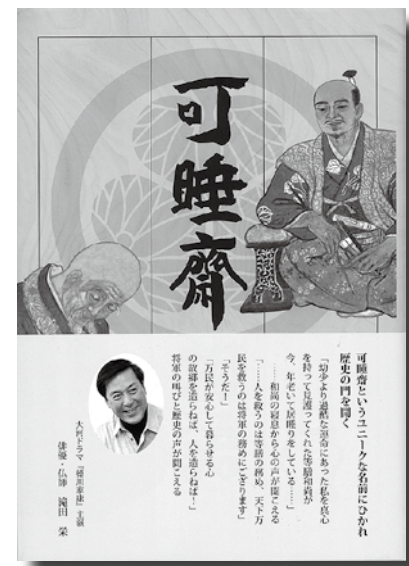 可睡齋
可睡齋というユニークな名前にひかれ
歴史の門を開く
「幼少より過酷な運命にあった私を真心
を持って見護ってくれた等膳和尚が
今、年老いて居眠りをしている……」
……和尚の寝息から心の声が聞こえる
「……人を救うのは等膳の務め、天下万
民を救うのは将軍の務めにござります」
「そうだ！」
「万民が安心して暮らせる心
の故郷を造らねば、人を造らねば！」
将軍の叫びと歴史の声が聞こえる
大河ドラマ『徳川家康』主演
俳優・仏師 滝田 栄